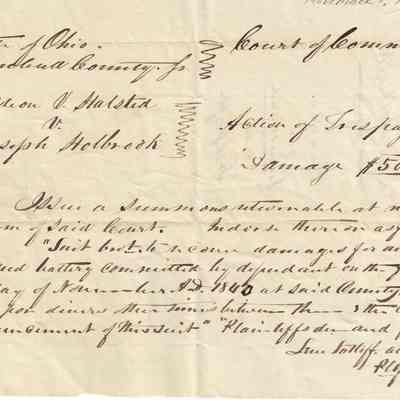 November 1, 1
te of Ohio.
mbull County. Ss
Court of Comm
ideon V. Halsted
V.
seph Holbrook
Action of Trespa
Damage $50
Issue a summons returnable at n
rm of said Court. Indorse thereon as
"Suit brot to recover damages for a
and battery committed by defendant on the
day of November A.D. 1840 at said County
upon divers other times between then & the
mencement of this suit" "Plaintiff ode and
True
Plff